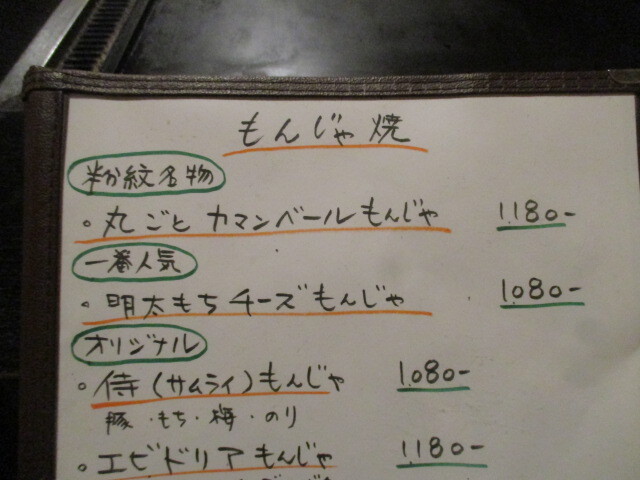 もんじゃ焼
粉紋名物
・丸ごとカマンベールもんじゃ 1180-
一番人気
・明太もちチーズもんじゃ 1080-
オリジナル
・侍(サムライ)もんじゃ 1080-
豚・もち・梅・のり
・エビドリアもんじゃ 1180-